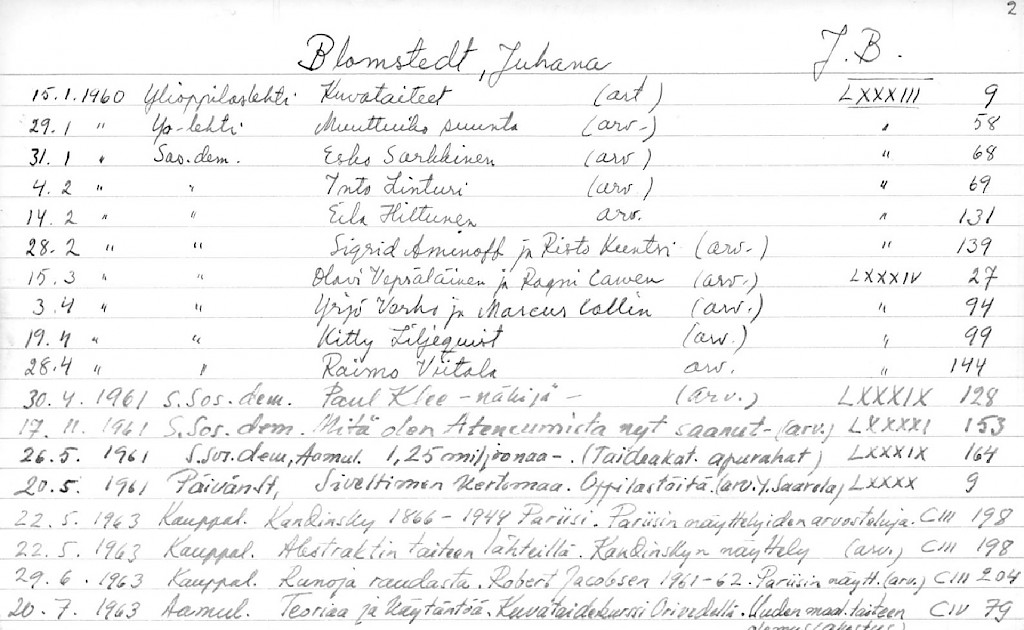 2
Blomstedt, Juhana J.B.
15.1.1960 Ylioppilaslehti Kuvataiteet (art) LXXXIII 9
29.1 " Yo-lehti Muuttuiko suunta (arv.) " 58
31.1 " Sos.dem. Esko Sarkkinen (arv) " 68
4.2 " " Into Linturi (arv) " 69
14.2 " " Eila Hiltunen arv. " 131
28.2 " " Sigrid Aminoff ja Risto (arv.) " 139
15.3 " " Olavi Vepsäläinen ja Ragni Cawen (arv.) LXXXIV 27
3.4 " " Yrjö Verho ja Marcus Collin (arv.) " 94
19.4 " " Kitty Liljequist (arv.) " 99
28.4 " " Raimo Viitala arv. " 144
30.4. 1961 S.Sos.dem. Paul Klee - näkijä - (arv.) LXXXIX 128
17. 11. 1961 S.Sos.dem. Mitä olen Ateneumista nyt saanut - (arv.) LXXXXI 153
26.5. 1961 S.Sos.dem, Aamul. 1,25 miljoonaa -. (Taideakat. apurahat) LXXXIX 164
20.5. 1961 Päivän S., Siveltimen kertomaa. Oppilastöitä. (arv.) LXXXX 9
22.5. 1963 Kauppal. Kandinsky 1866-1944 Pariisi. Pariisin näyttelyiden arvosteluja. CIII 198
22.5. 1963 Kauppal. Abstraktin taiteen lähteillä. Kandinskyn näyttely (arv.) CIII 198
29.6. 1963 Kauppal. Runoja raudasta. Robert Jacobsen 1961-62. Pariisin näytt. (arv.) CIII 204
20.7. 1963 Aamul. Teoriaa ja käytäntöä. Kuvataidekurssi Orivedellä. Uuden maal.taiteen CIV 79
olemus